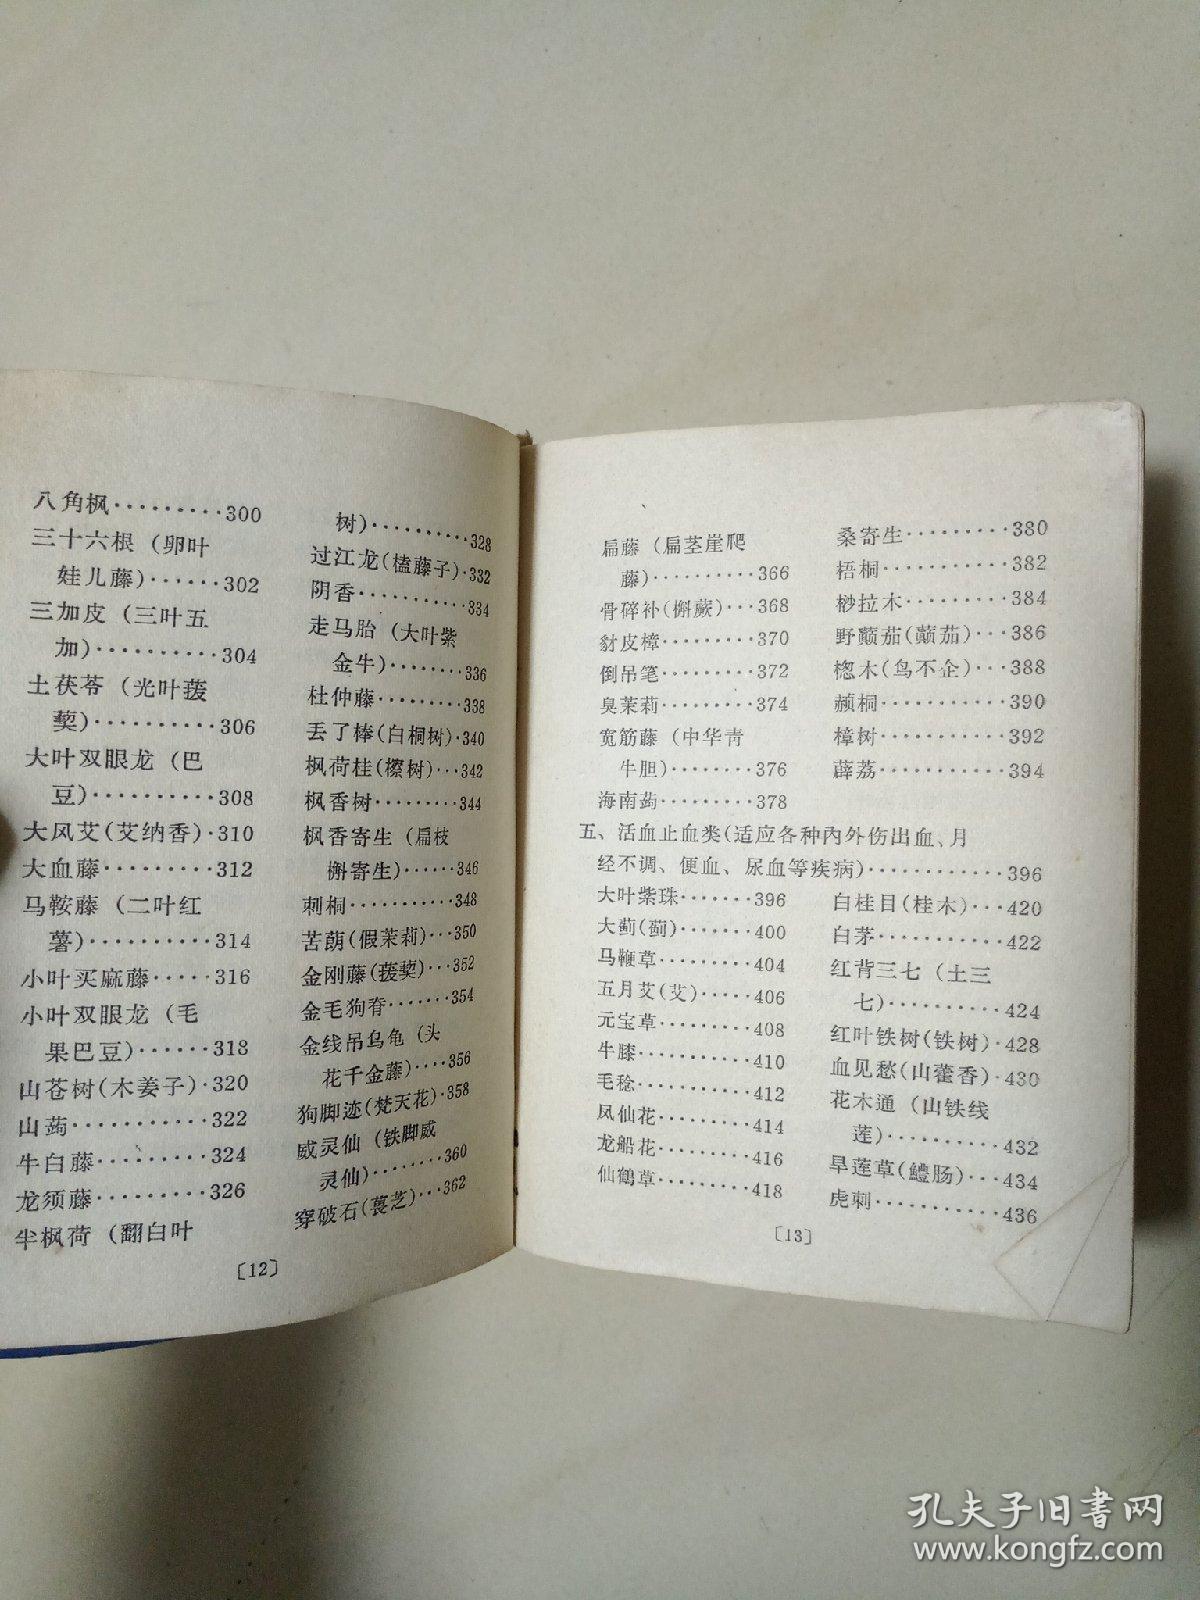 八角枫·········300
三十六根（卵叶
娃儿藤）······302
三加皮（三叶五
加）··········304
土茯苓（光叶菝
葜）··········306
大叶双眼龙（巴
豆）··········308
大风艾(艾纳香)·310
大血藤·········312
马鞍藤（二叶红
薯）··········314
小叶买麻藤·····316
小叶双眼龙（毛
果巴豆）······318
山苍树(木姜子)·320
山蒟···········322
牛白藤·········324
龙须藤·········326
半枫荷（翻白叶
树）··········328
过江龙(榼藤子)·332
阴香···········334
走马胎（大叶紫
金牛）········336
杜仲藤·········338
丢了棒(白桐树)·340
枫荷桂(檫树)···342
枫香树·········344
枫香寄生（扁枝
槲寄生）······346
刺桐···········348
苦蓢(假茉莉)···350
金刚藤(菝葜)···352
金毛狗脊·······354
金线吊乌龟（头
花千金藤）····356
狗脚迹(梵天花)·358
威灵仙（铁脚威
灵仙）········360
穿破石(葨芝)···362
〔12〕
扁藤（扁茎崖爬
藤）··········366
骨碎补(槲蕨)···368
豺皮樟·········370
倒吊笔·········372
臭茉莉·········374
宽筋藤（中华青
牛胆）········376
海南蒟·········378
桑寄生·········380
梧桐···········382
桫拉木·········384
野颠茄(颠茄)···386
楤木(鸟不企)···388
赪桐···········390
樟树···········392
薜荔···········394
五、活血止血类(适应各种内外伤出血、月
经不调、便血、尿血等疾病)············396
大叶紫珠·······396
大蓟(蓟)·······400
马鞭草·········404
五月艾(艾)·····406
元宝草·········408
牛膝···········410
毛稔···········412
凤仙花·········414
龙船花·········416
仙鹤草·········418
白桂目(桂木)···420
白茅···········422
红背三七（土三
七）··········424
红叶铁树(铁树)·428
血见愁(山藿香)·430
花木通（山铁线
莲）··········432
旱莲草(鳢肠)···434
虎刺···········436
〔13〕
孔夫子旧书网
www.kongfz.com